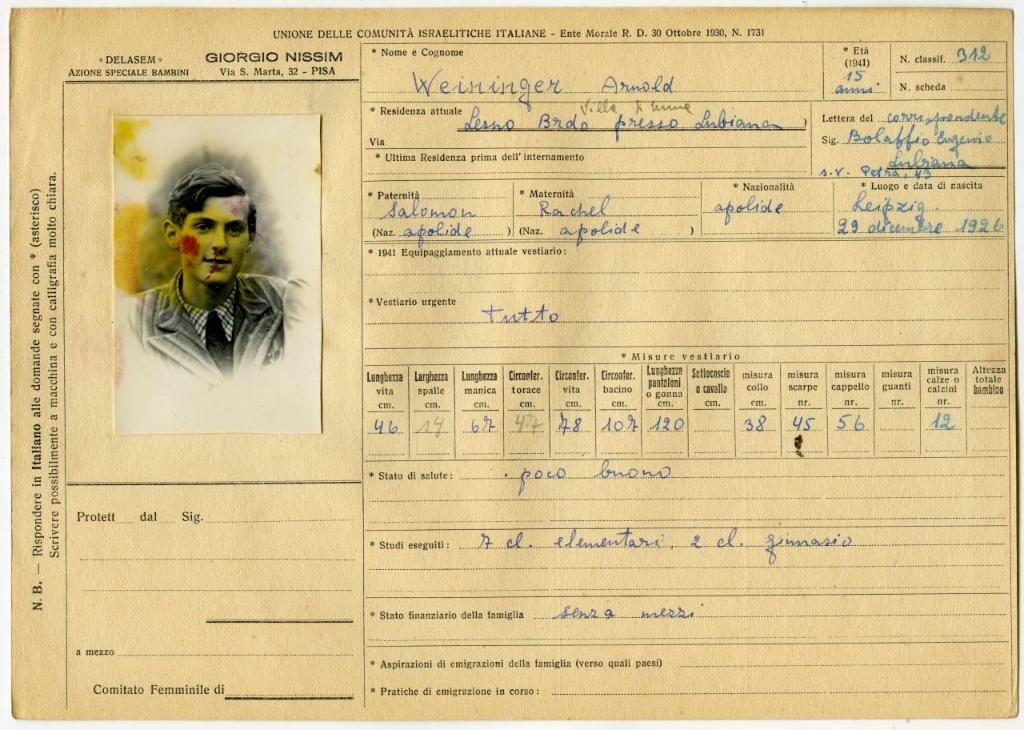 UNIONE DELLE COMUNITÀ ISRAELITICHE ITALIANE - Ente Morale R. D. 30 Ottobre 1930, N. 1731
« DELASEM »
AZIONE SPECIALE BAMBINI
GIORGIO NISSIM
Via S. Marta, 32 - PISA
* Nome e Cognome
Weininger Arnold
* Età
(1941)
15
anni
N. classif. 312
N. scheda
* Residenza attuale
Villa
Lesno Brdo presso Lubiana
Via
* Ultima Residenza prima dell' internamento
Lettera del corrispondente
Sig. Bolaffio Eugenio
Lubiana
s.v. Petra, 43
* Paternità
Salomon
(Naz. apolide )
* Maternità
Rachel
(Naz. apolide )
* Nazionalità
apolide
* Luogo e data di nascita
Leipzig
29 dicembre 1926
* 1941 Equipaggiamento attuale vestiario:
* Vestiario urgente
tutto
* Misure vestiario
Lunghezza vita cm. 46
Larghezza spalle cm. 14
Lunghezza manica cm. 67
Circonfer. torace cm. 47
Circonfer. vita cm. 78
Circonfer. bacino cm. 107
Lunghezza pantaloni o gonna cm. 120
Sottocoscia o cavallo cm.
misura collo cm. 38
misura scarpe nr. 45
misura cappello nr. 56
misura guanti nr.
misura calze o calzini nr. 12
Altezza totale bambino
* Stato di salute: poco buono
* Studi eseguiti: 7 cl. elementari, 2 cl. ginnasio
* Stato finanziario della famiglia senza mezzi
* Aspirazioni di emigrazioni della famiglia (verso quali paesi)
* Pratiche di emigrazione in corso:
Protett dal Sig.
a mezzo
Comitato Femminile di
N. B. — Rispondere in Italiano alle domande segnate con * (asterisco)
Scrivere possibilmente a macchina e con calligrafia molto chiara.